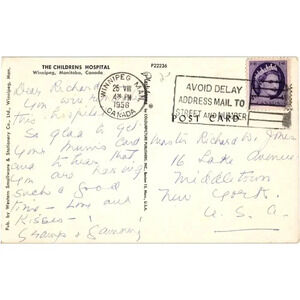 THE CHILDRENS HOSPITAL
Winnipeg, Manitoba, Canada
P22236
WINNIPEG MAN.
25 VIII
4 PM
1958
CANADA
AVOID DELAY
ADDRESS MAIL TO
STREET AND NUMBER
POST CARD
Dear Richard
You were
this hospital
So glad to get
your Mum's card
and to hear that
you are having
such a good
time - Love and
Kisses -
Gramps & Gammy
Master Richard
16 Lake Avenue
Middletown
New York.
U. S. A.
Pub. by Western Smallwares & Stationery Co., Ltd. Winnipeg, Man.